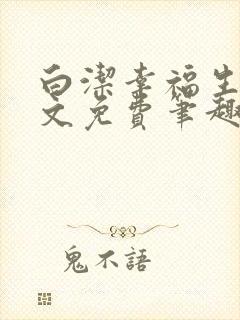 白潔幸福生
文免費筆趣
鬼不語